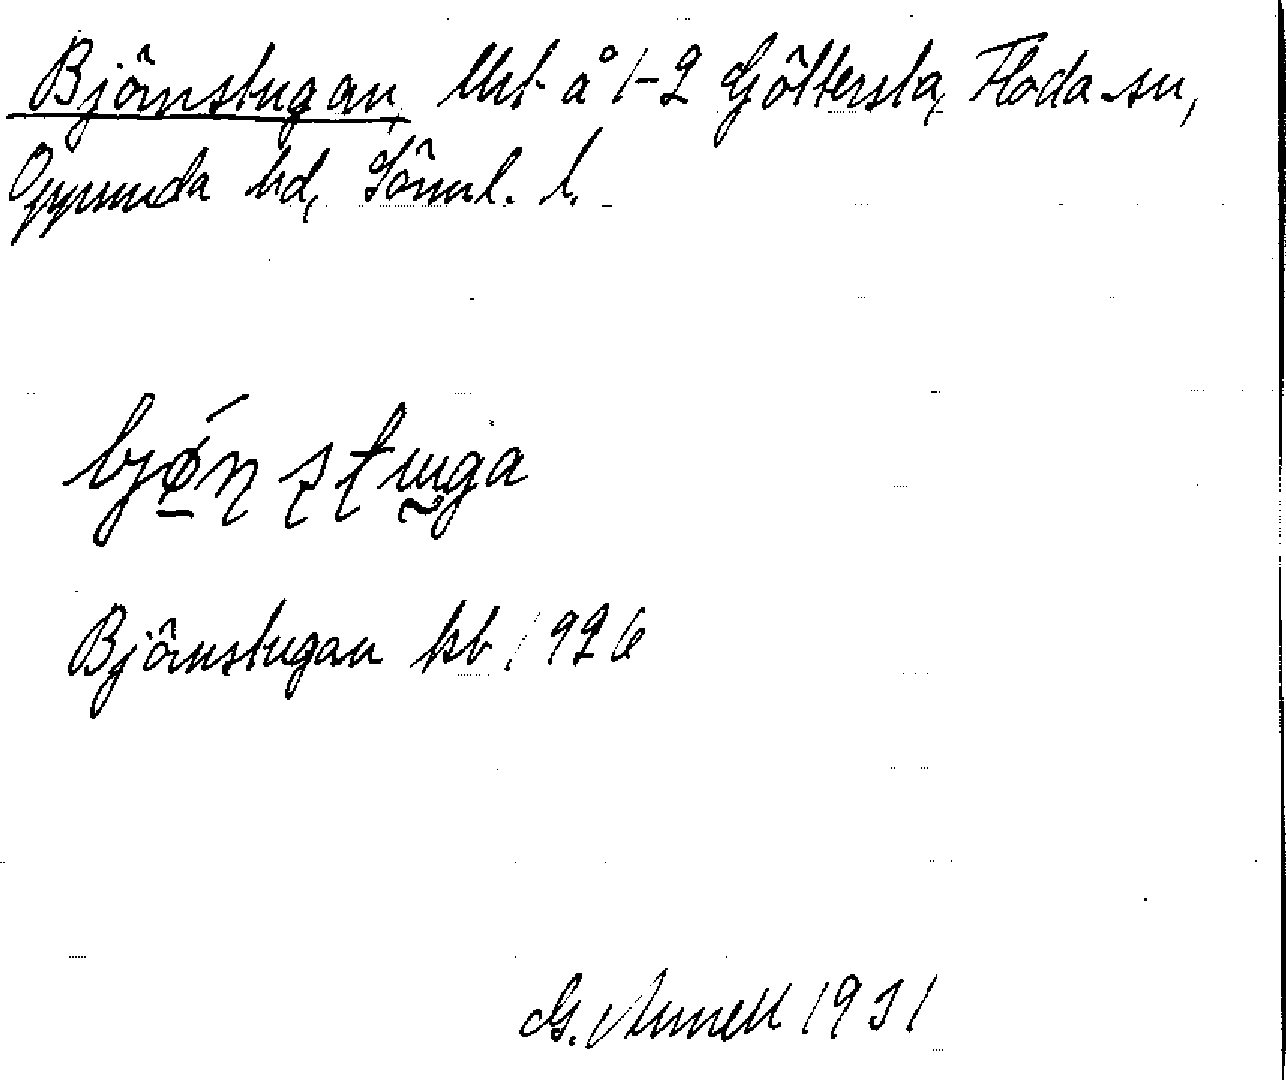 Björnstugan, Ust å 1-2 Göttersta, Floda sn,
Oppunda hd, Sörml. l.
bjǿn stuga
Björnstugan kb 1926
G. 1931